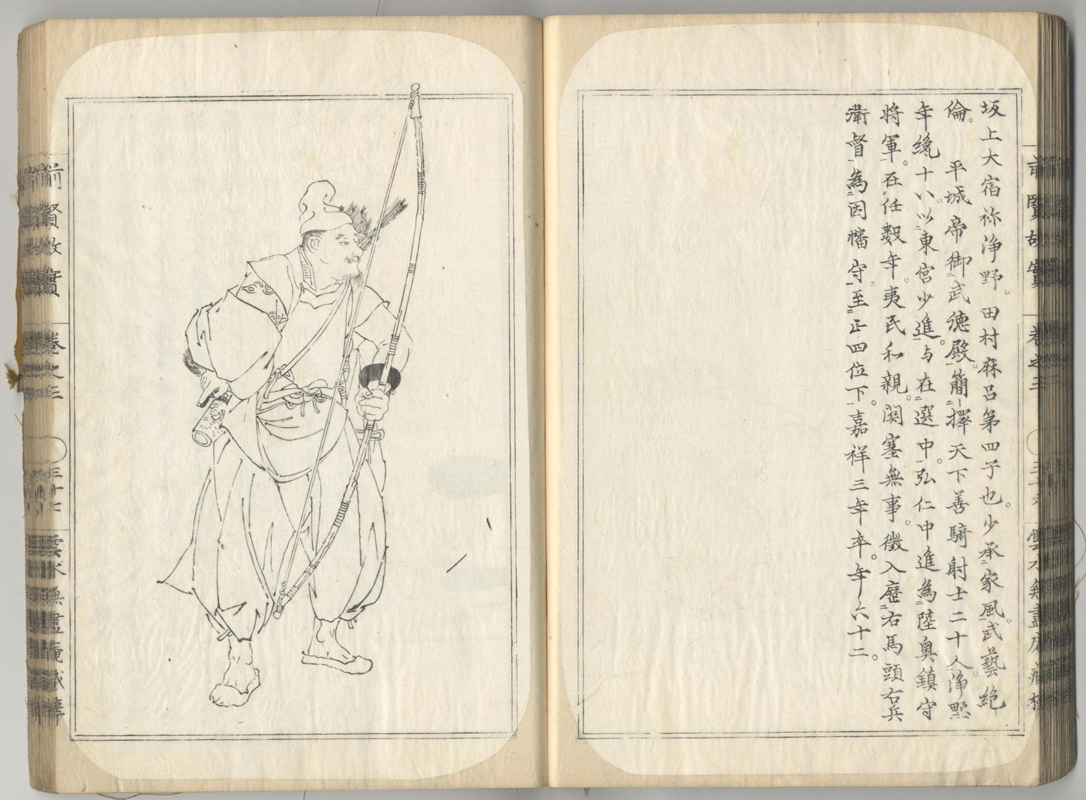 坂上大宿祢浄野。田村麻呂第四子也。少承家風。武藝絶
倫。平城帝御武徳殿。簡擇天下善騎射士二十人。浄野
年纔十八。以東宮少進。与在選中。弘仁中進為陸奥鎮守
将軍。在任数年。夷民和親。関塞無事。徴入歴右馬頭右兵
衛督。為因幡守。至正四位下。嘉祥三年卒。年六十二。
前賢故實
巻之三
三十七
雲水無盡庵蔵